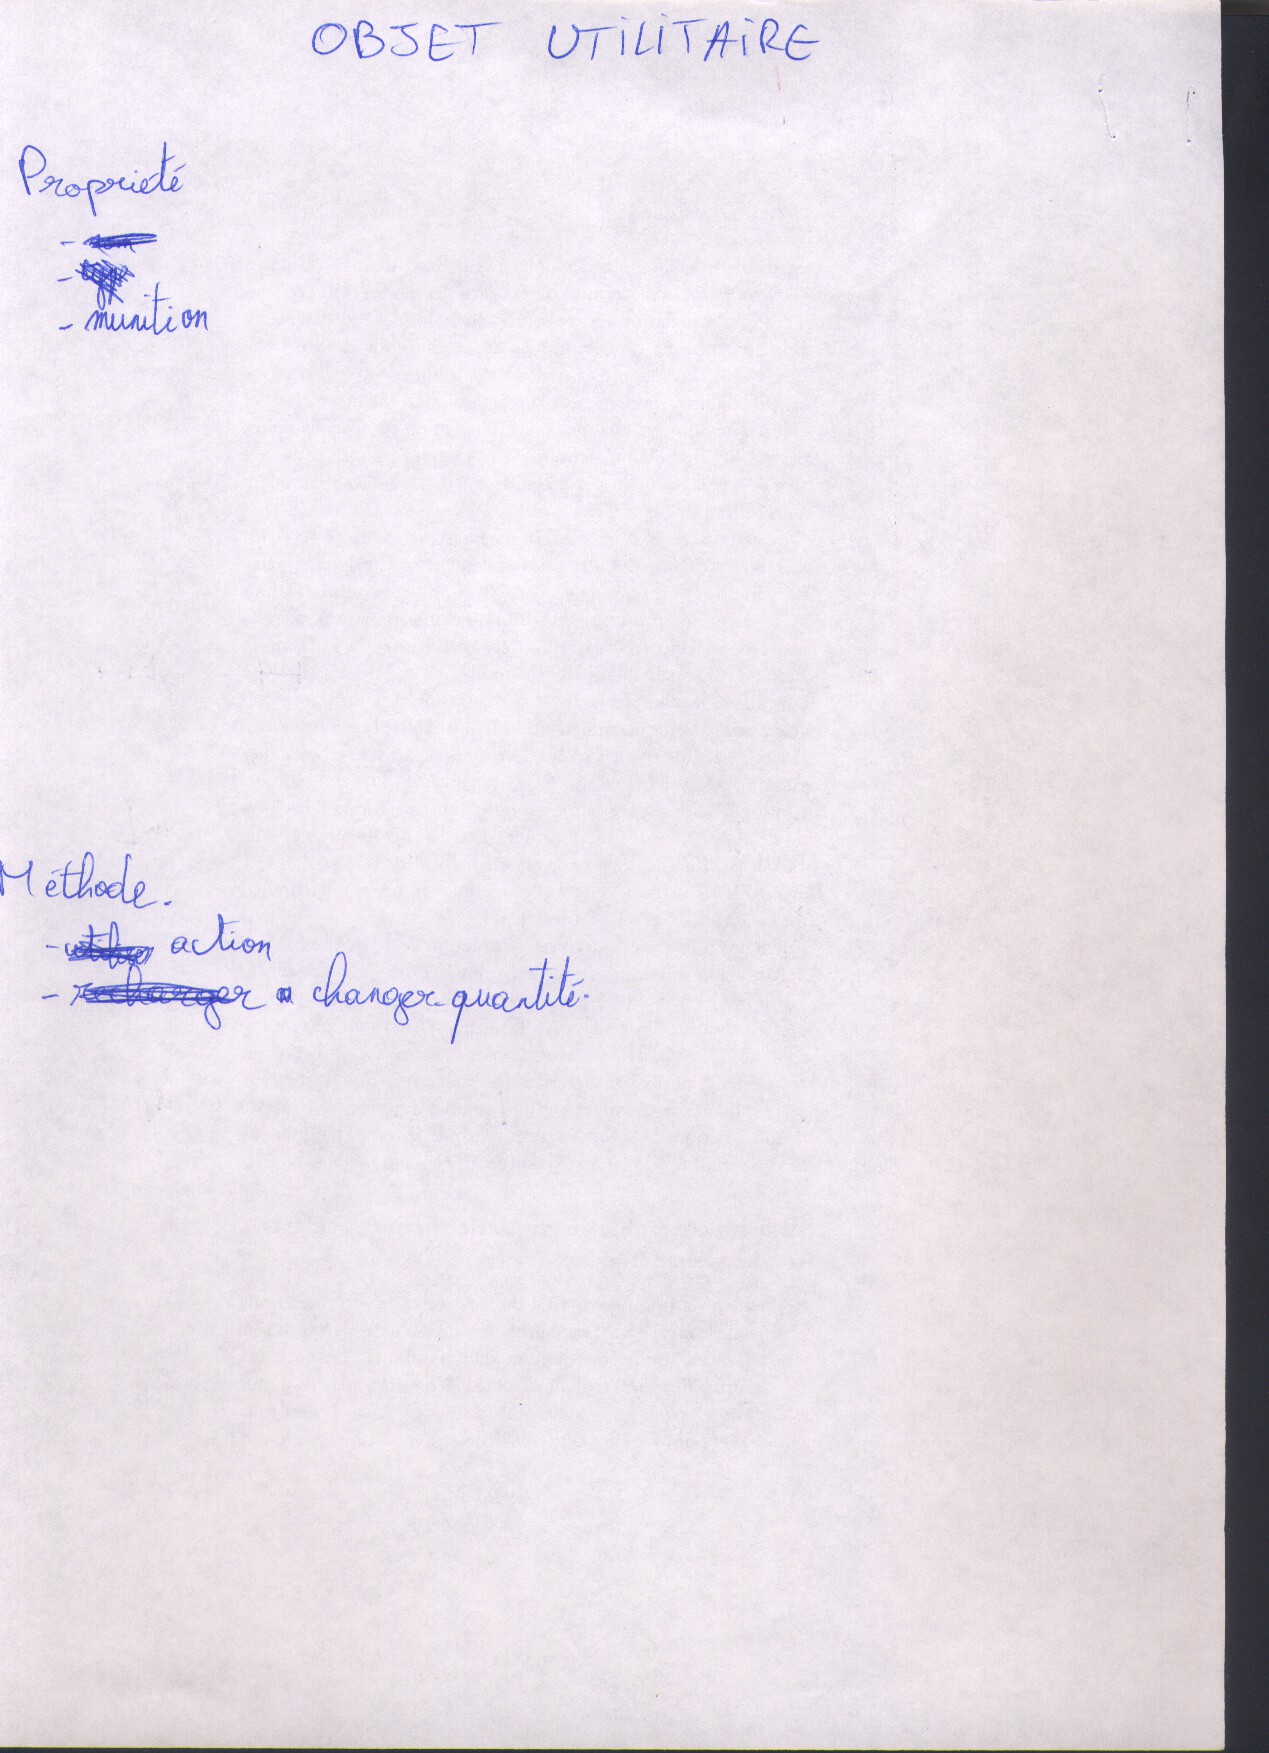 OBJET UTILITAIRE
Propriété
- nom
-
- munition
Méthode.
- utiliser action
- recharger changer quantité.